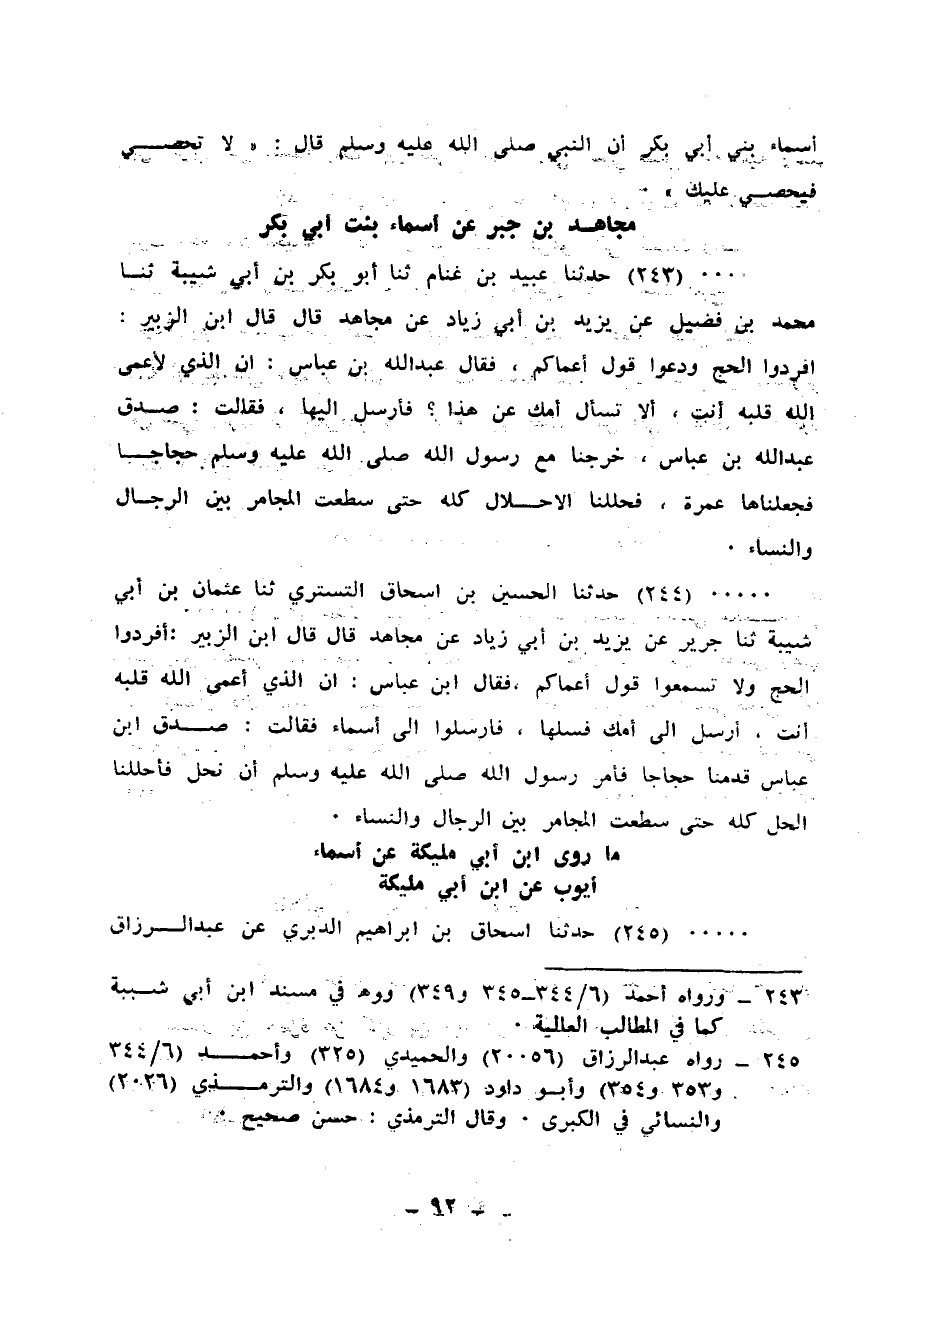 أسماء بني أبي بكر أن النبي صلى الله عليه وسلم قال : « لا تحصـــي
فيحصـي عليك » ٠
مجاهـد بن جبر عن أسماء بنت أبي بكر
٠٠٠٠ (٢٤٣) حدثنا عبيد بن غنام ثنا أبو بكر بن أبي شيبة ثنـا
محمد بن فضيل عن يزيد بن أبي زياد عن مجاهد قال قال ابن الزبير :
افردوا الحج ودعوا قول أعماكم ، فقال عبدالله بن عباس : ان الذي لأعمى
الله قلبه أنت ، ألا تسأل أمك عن هذا ؟ فأرسل اليها ، فقالت : صـدق
عبدالله بن عباس ، خرجنا مع رسول الله صلى الله عليه وسلم حجاجـا
فجعلناها عمرة ، فحللنا الاحـــلال كله حتى سطعت المجامر بين الرجـال
والنساء ٠
٠٠٠٠٠ (٢٤٤) حدثنا الحسين بن اسحاق التستري ثنا عثمان بن أبي
شيبة ثنا جرير عن يزيد بن أبي زياد عن مجاهد قال قال ابن الزبير :أفردوا
الحج ولا تسمعوا قول أعماكم ،فقال ابن عباس : ان الذي أعمى الله قلبه
أنت ، أرسل الى أمك فسلها ، فارسلوا الى أسماء فقالت : صـــدق ابن
عباس قدمنا حجاجا فأمر رسول الله صلى الله عليه وسلم أن نحل فأحللنا
الحل كله حتى سطعت المجامر بين الرجال والنساء ٠
ما روى ابن أبي مليكة عن أسماء
أيوب عن ابن أبي مليكة
٠٠٠٠٠ (٢٤٥) حدثنا اسحاق بن ابراهيم الدبري عن عبدالـــرزاق
٢٤٣ ـ ورواه أحمد (٣٤٤/٦ـ٣٤٥ و٣٤٩) ووه في مسند ابن أبي شـيبة
كما في المطالب العالية ٠
٢٤٥ ـ رواه عبدالرزاق (٢٠٠٥٦) والحميدي (٣٢٥) وأحمـــد (٣٤٤/٦
و٣٥٣ و٣٥٤) وأبـو داود (١٦٨٣ و١٦٨٤) والترمـــذي (٢٠٢٦)
والنسائي في الكبرى ٠ وقال الترمذي : حسن صحيح ٠
ـ ٩٢ ـ